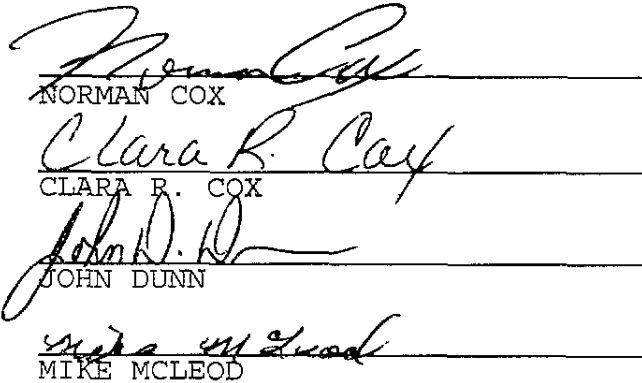 Norman Cox
NORMAN COX
Clara R. Cox
CLARA R. COX
John D. Dunn
JOHN DUNN
Mike McLeod
MIKE MCLEOD